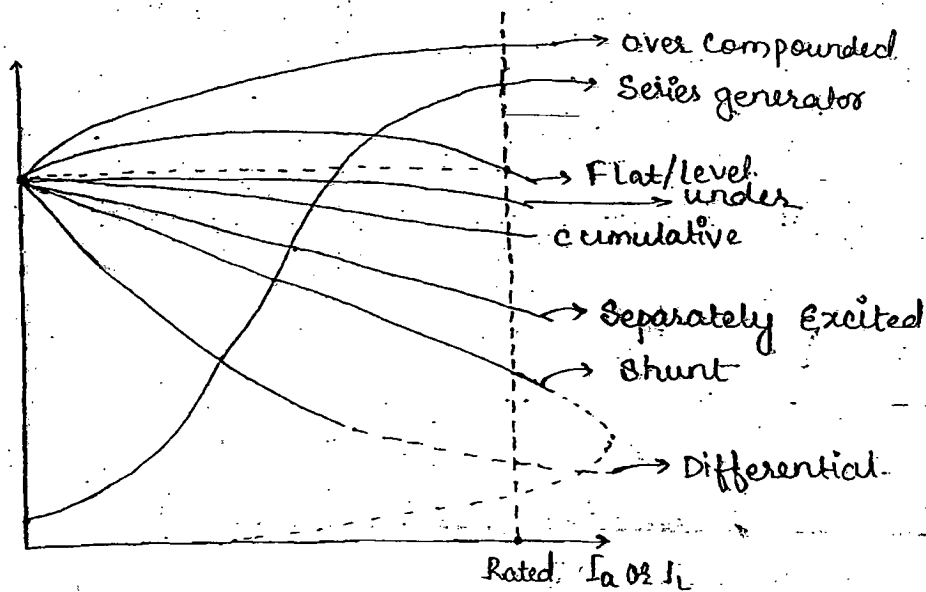 over compounded
Series generator
Flat/level
under
cumulative
Separately Excited
Shunt
Differential
Rated Ia or IL